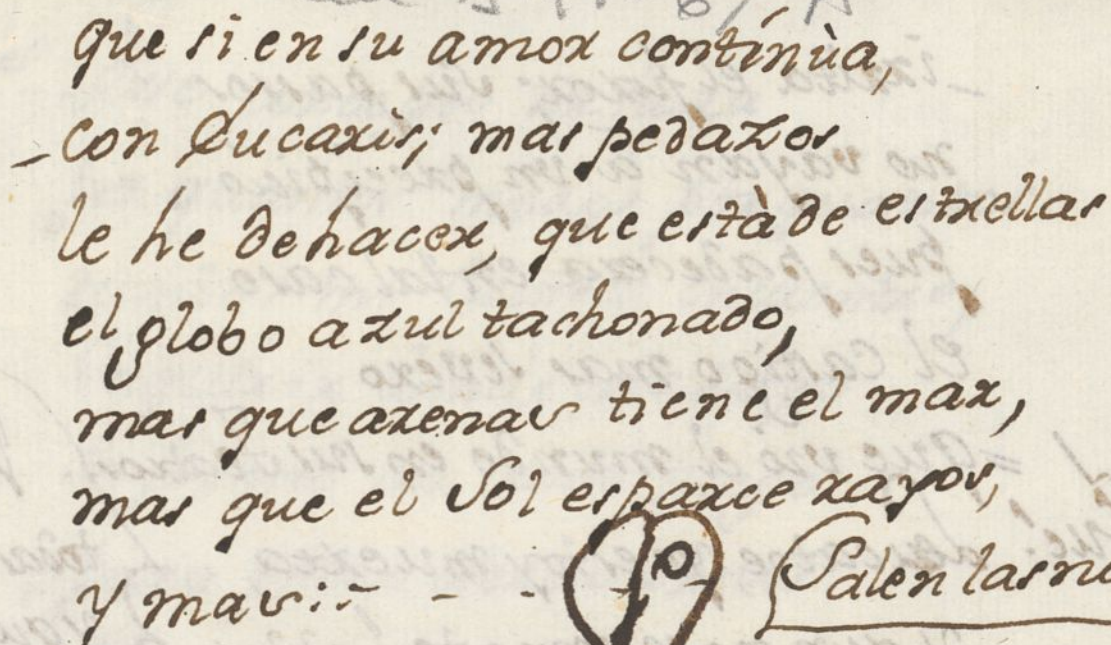 que si en su amor contínùa,
- con Eucaris; mas pedazos
le he de hacer, que està de estrellas
el globo azul tachonado,
mas que arenas tiene el mar,
mas que el Sol esparce rayos,
y mas:- - - - Salen las